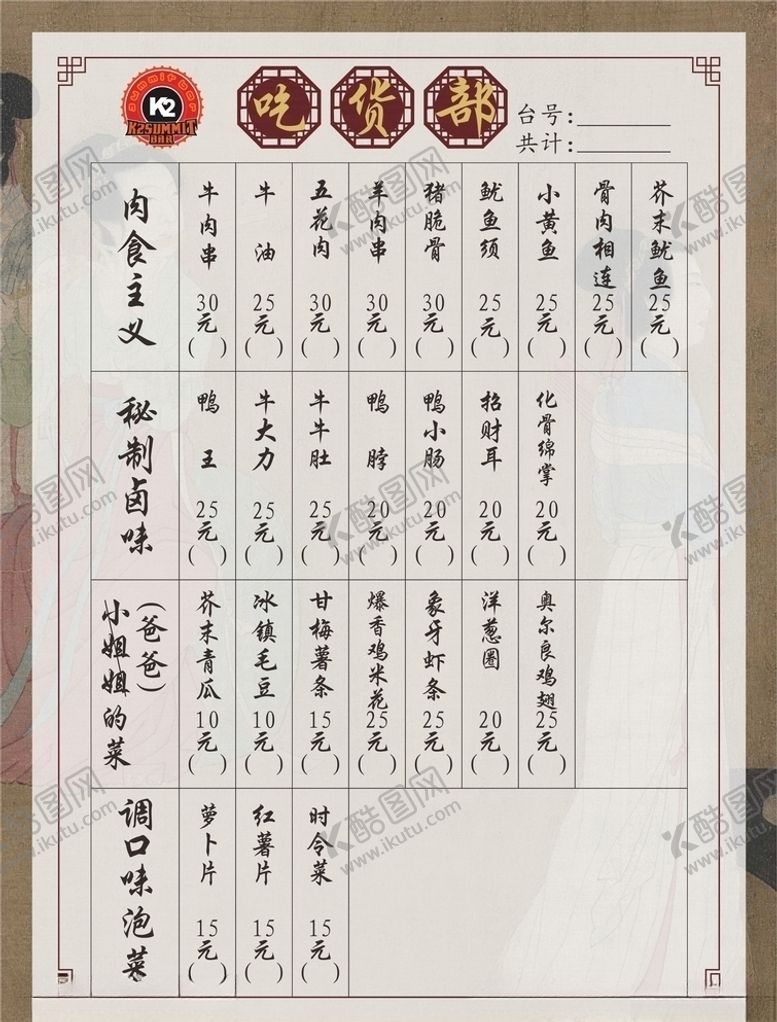 summit bar
K2
K2SUMMIT
BAR
吃货部
台号:
共计:
肉食主义
牛肉串 30元( )
牛油 25元( )
五花肉 30元( )
羊肉串 30元( )
猪脆骨 30元( )
鱿鱼须 25元( )
小黄鱼 25元( )
骨肉相连 25元( )
芥末鱿鱼 25元( )
秘制卤味
鸭王 25元( )
牛大力 25元( )
牛牛肚 25元( )
鸭脖 20元( )
鸭小肠 20元( )
招财耳 20元( )
化骨绵掌 20元( )
(爸爸)
小姐姐的菜
芥末青瓜 10元( )
冰镇毛豆 10元( )
甘梅薯条 15元( )
爆香鸡米花 25元( )
象牙虾条 25元( )
洋葱圈 20元( )
奥尔良鸡翅 25元( )
调口味泡菜
萝卜片 15元( )
红薯片 15元( )
时令菜 15元( )
酷图网
www.ikutu.com